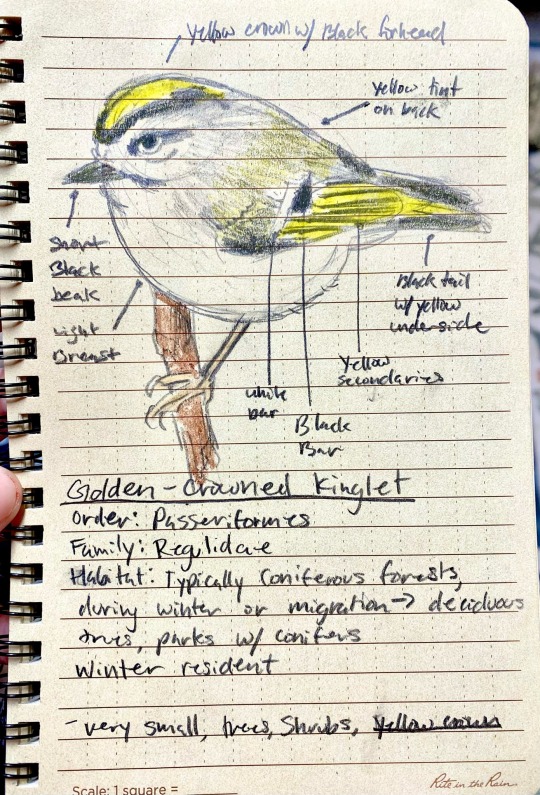 Yellow crown w/ Black forhead
Yellow tint
on back
Short
Black
beak
Light
Breast
Black tail
w/ yellow
underside
Yellow
secondaries
white
bar
Black
Bar
Golden-Crowned Kinglet
Order: Passeriformes
Family: Regulidae
Habitat: Typically Coniferous forests,
during winter or migration → deciduous
trees, parks w/ conifers
Winter resident
- very small, trees, Shrubs, yellow crown
Scale: 1 square =
Rite in the Rain